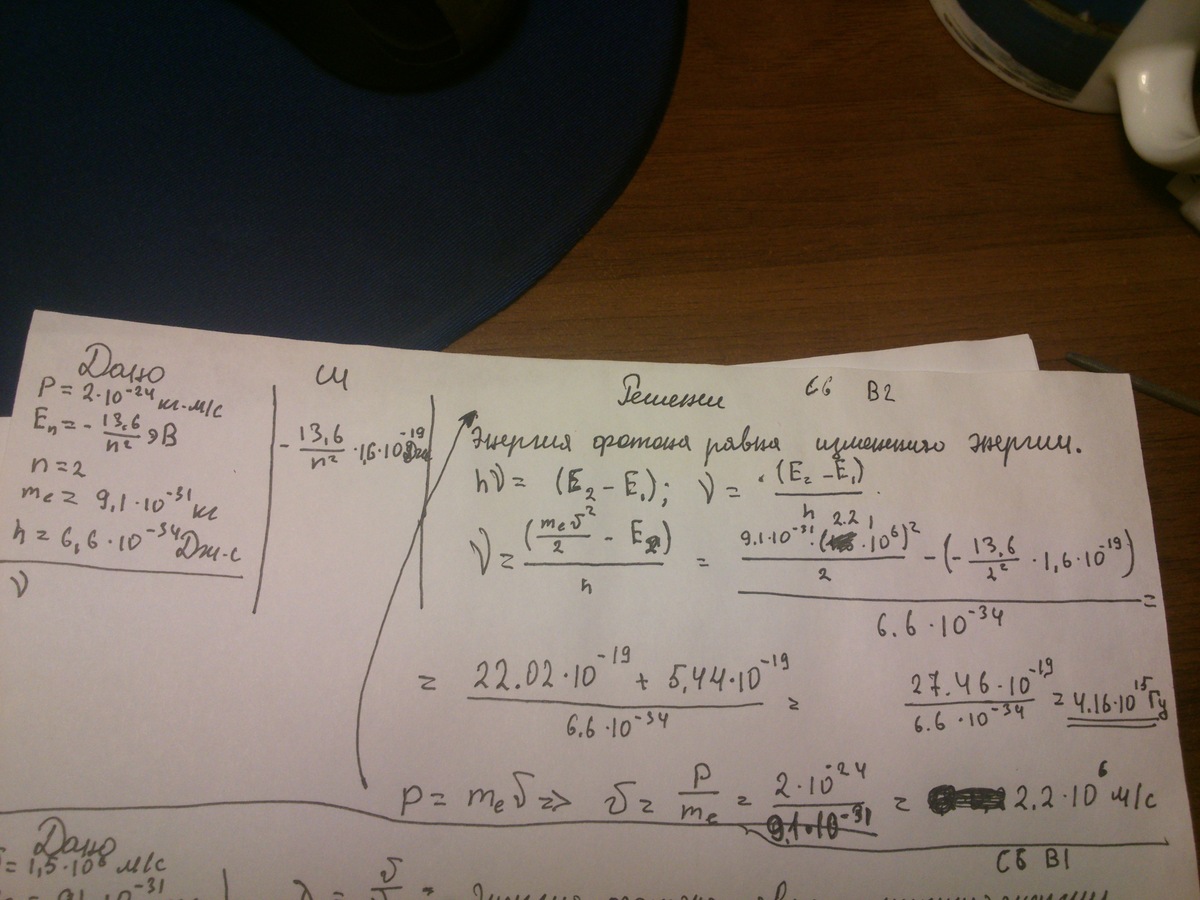 Дано
P = 2·10⁻²⁴ кг·м/с
Eₙ = - 13,6/n² эВ
n = 2
mₑ = 9,1·10⁻³¹ кг
h = 6,6·10⁻³⁴ Дж·с
ν
СИ
- 13,6/n² · 1,6·10⁻¹⁹ Дж
Решение С6 В2
Энергия фотона равна изменению энергии.
hν = (E₂ - E₁); ν = (E₂ - E₁)/h
ν = (mₑv²/2 - E₂)/h = (9.1·10⁻³¹·(2.21·10⁶)²/2 - (- 13,6/2² · 1,6·10⁻¹⁹))/6.6·10⁻³⁴ =
= (22.02·10⁻¹⁹ + 5,44·10⁻¹⁹)/6.6·10⁻³⁴ = 27.46·10⁻¹⁹/6.6·10⁻³⁴ = 4.16·10¹⁵ Гц
P = mₑv => v = P/mₑ = 2·10⁻²⁴/9.1·10⁻³¹ = 2.2·10⁶ м/с
С6 В1
Дано
= 1,5·10⁶ м/с
Энергия фотона